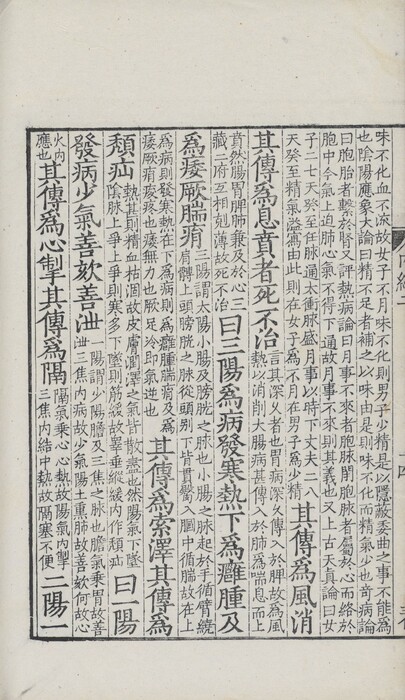 味不化血不流故女子不月味不化則男子少精是以隱蔽委曲之事不能為
也陰陽應象大論曰精不足者補之以味由是則味不化而精氣少也竒病論
曰胞胎者繫於腎又評熱病論曰月事不來者胞脉閉胞脉者屬於心而絡於
胞中今氣上迫肺心氣不得下通故月事不來則其義也又上古天真論曰女
子二七天癸至任脉通太衝脉盛月事以時下丈夫二八
天癸至精氣溢寫由此則在女子為不月在男子為少精
其傳爲風消
其傳爲息賁者死不治
言其深乆者也胃病深乆傳入於脾故為風
熱以消削大腸病甚傳入於肺為喘息而上
賁然腸胃脾肺兼及於心三
藏二府互相剋薄故死不治
曰三陽爲病發寒熱下爲癰腫及
爲痿厥腨㾓
三陽謂太陽小腸及膀胱之脉也小腸之脉起於手循臂繞
肩髆上頭膀胱之脉從頭别下背貫臀入膕中循腨故在上
為病則發寒熱在下為病則為癰腫腨㾓及為
痿厥㾓痠疼也痿無力也厥足冷即氣逆也
其傳爲索澤其傳爲
頹疝
熱甚則精血枯涸故皮膚潤澤之氣皆散盡也然陽氣下墜
陰脉上爭上爭則寒多下墜則筋緩故睾垂縱緩内作頹疝
曰一陽
發病少氣善欬善泄
一陽謂少陽膽及三焦之脉也膽氣乗胃故善
泄三焦内病故少氣陽土熏肺故善欬何故心
火内
應也
其傳爲心掣其傳爲隔
隔氣乗心心熱故陽氣内掣
三焦内結中熱故隔塞不便
二陽一